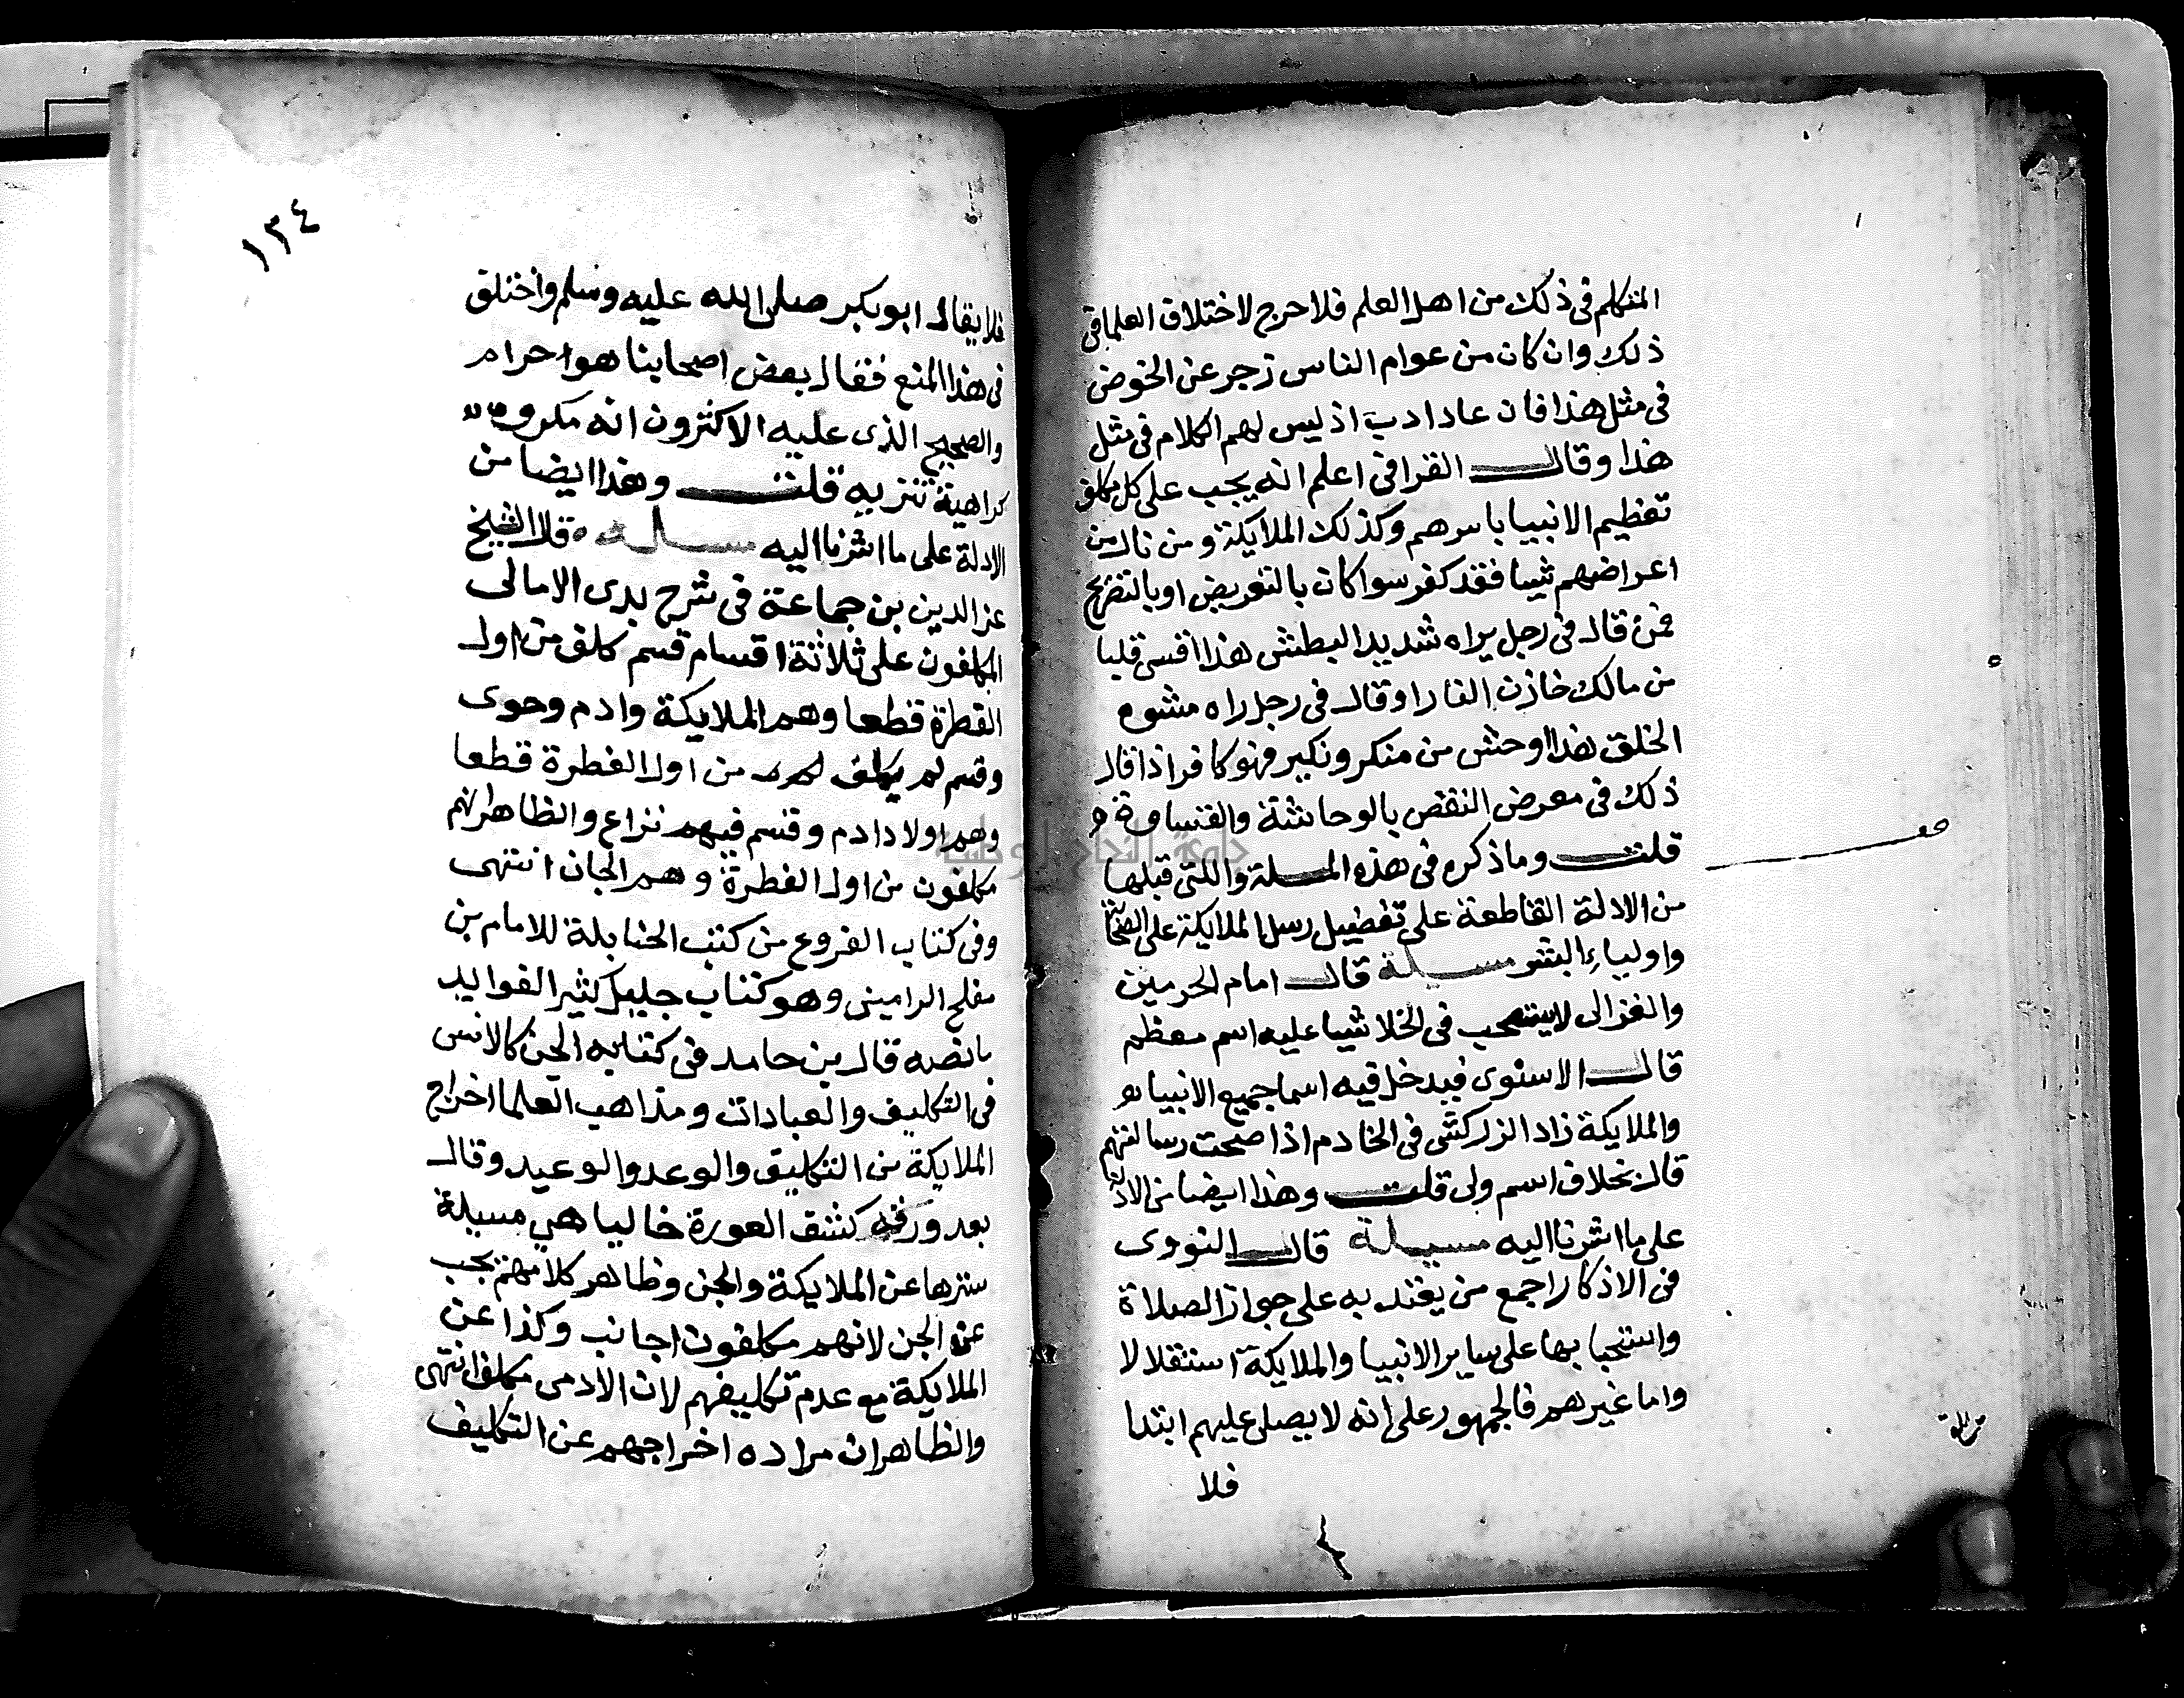 المتكلم فى ذلك من اهل العلم فلا حرج لاختلاف العلما فى
ذلك وان كان من عوام الناس زجر عن الخوض
فى مثل هذا فان عاد ادب اذ ليس لهم الكلام فى مثل
هذا وقال القرافى اعلم انه يجب على كل مكلف
تعظيم الانبيا باسرهم وكذلك الملايكة ومن نال من
اعراضهم شيا فقد كفر سوا كان بالتعريض او بالتصريح
فمن قال فى رجل يراه شديد البطش هذا اقسى قلبا
من مالك خازن النار او قال فى رجل راه مشوه
الخلق هذا اوحش من منكر ونكير فهو كافر اذا قال
ذلك فى معرض النقص بالوحاشة والقساوة
قلت وما ذكره فى هذه المسلة واللتى قبلها
من الادلة القاطعة على تفضيل رسل الملايكة على الصحابة
واولياء البشر مسيلة قال امام الحرمين
والغزالى لا يستصحب فى الخلا شيا عليه اسم معظم
قال الاسنوى فيدخل فيه اسما جميع الانبيا
والملايكة زاد الزركشى فى الخادم اذا صحت رسالتهم
قال بخلاف اسم ولى قلت وهذا ايضا من الادلة
على ما اشرنا اليه مسيلة قال النووى
فى الاذكار اجمع من يعتد به على جواز الصلاة
واستحبابها على ساير الانبيا والملايكة استقلالا
واما غيرهم فالجمهور على انه لا يصلى عليهم ابتدا
فلا
١٣٤
فلا يقال ابو بكر صلى الله عليه وسلم واختلف
فى هذا المنع فقال بعض اصحابنا هو حرام
والصحيح الذى عليه الاكثرون انه مكروه
كراهية تنزيه قلت وهذا ايضا من
الادلة على ما اشرنا اليه مسيلة قال الشيخ
عز الدين بن جماعة فى شرح بدى الامالى
المكلفون على ثلاثة اقسام قسم كلف من اول
الفطرة قطعا وهم الملايكة وادم وحوى
وقسم لم يكلف من اول الفطرة قطعا
وهم اولاد ادم وقسم فيهم نزاع والظاهر انهم
مكلفون من اول الفطرة وهم الجان انتهى
وفى كتاب الفروع من كتب الحنابلة للامام بن
مفلح الرامينى وهو كتاب جليل كثير الفوايد
ما نصه قال بن حامد فى كتابه الجن كالانس
فى التكليف والعبادات ومذاهب العلما اخراج
الملايكة من التكليف والوعد والوعيد وقال
بعد ورقه كشف العورة خاليا هى مسيلة
سترها عن الملايكة والجن وظاهر كلامهم يجب
عن الجن لانهم مكلفون اجانب وكذا عن
الملايكة مع عدم تكليفهم لان الادمى مكلف انتهى
والظاهر ان مراده اخراجهم عن التكليف